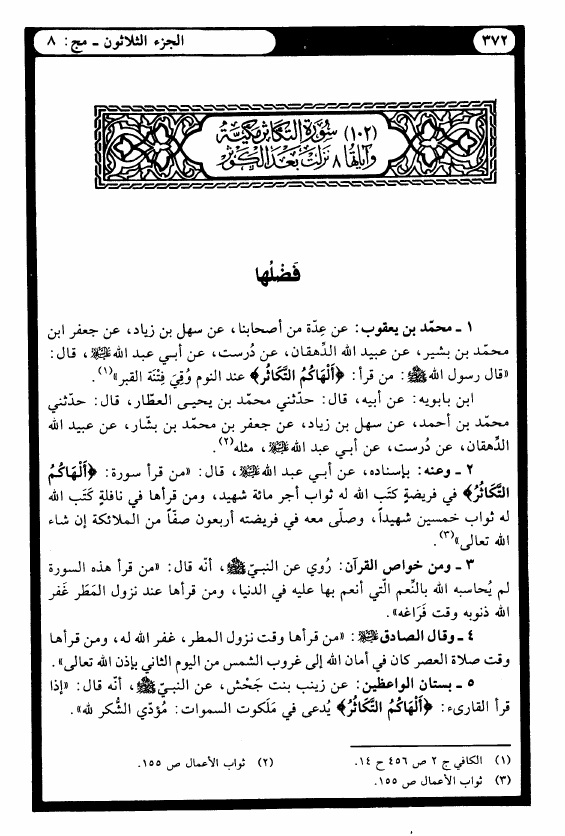 ٣٧٢
الجزء الثلاثون ـ مج: ٨
(١٠٢) سورة التكاثر مكيّة
وآياتها ٨ نزلت بعد الكوثر
فَضْلُها
١ ـ محمّد بن يعقوب: عن عِدّة من أصحابنا، عن سهل بن زياد، عن جعفر ابن
محمّد بن بشير، عن عبيد الله الدِّهقان، عن دُرست، عن أبي عبد الله ﷺ، قال:
«قال رسول الله ﷺ: من قرأ: ﴿أَلْهَاكُمُ التَّكَاثُر﴾ عند النوم وُقِيَ فِتْنَة القبر»(١).
ابن بابويه: عن أبيه، قال: حدّثني محمّد بن يحيى العطّار، قال: حدّثني
محمّد بن أحمد، عن سهل بن زياد، عن جعفر بن محمّد بن بشّار، عن عبيد الله
الدِّهقان، عن دُرست، عن أبي عبد الله ﷺ، مثله(٢).
٢ ـ وعنه: بإسناده، عن أبي عبد الله ﷺ، قال: «من قرأ سورة: ﴿أَلْهَاكُمُ
التَّكَاثُرُ﴾ في فريضةٍ كتَب الله له ثواب أجر مائة شهيد، ومن قرأها في نافلةٍ كتَب الله
له ثواب خمسين شهيداً، وصلّى معه في فريضته أربعون صفّاً من الملائكة إن شاء
الله تعالى»(٣).
٣ ـ ومن خواص القرآن: رُوي عن النبيّ ﷺ، أنّه قال: «من قرأ هذه السورة
لم يُحاسبه الله بالنِّعم الّتي أنعم بها عليه في الدنيا، ومن قرأها عند نزول المَطَر غَفر
الله ذنوبه وقت فَرَاغه».
٤ ـ وقال الصادق ﷺ: «من قرأها وقت نزول المطر، غفر الله له، ومن قرأها
وقت صلاة العصر كان في أمان الله إلى غروب الشمس من اليوم الثاني بإذن الله تعالى».
٥ ـ بستان الواعظين: عن زينب بنت جَحْش، عن النبيّ ﷺ، أنّه قال: «إذا
قرأ القارىء: ﴿أَلْهَاكُمُ التَّكَاثُرُ﴾ يُدعى في مَلَكوت السموات: مُؤدّي الشُّكر لله».
(١) الكافي ج ٢ ص ٤٥٦ ح ١٤.
(٢) ثواب الأعمال ص ١٥٥.
(٣) ثواب الأعمال ص ١٥٥.